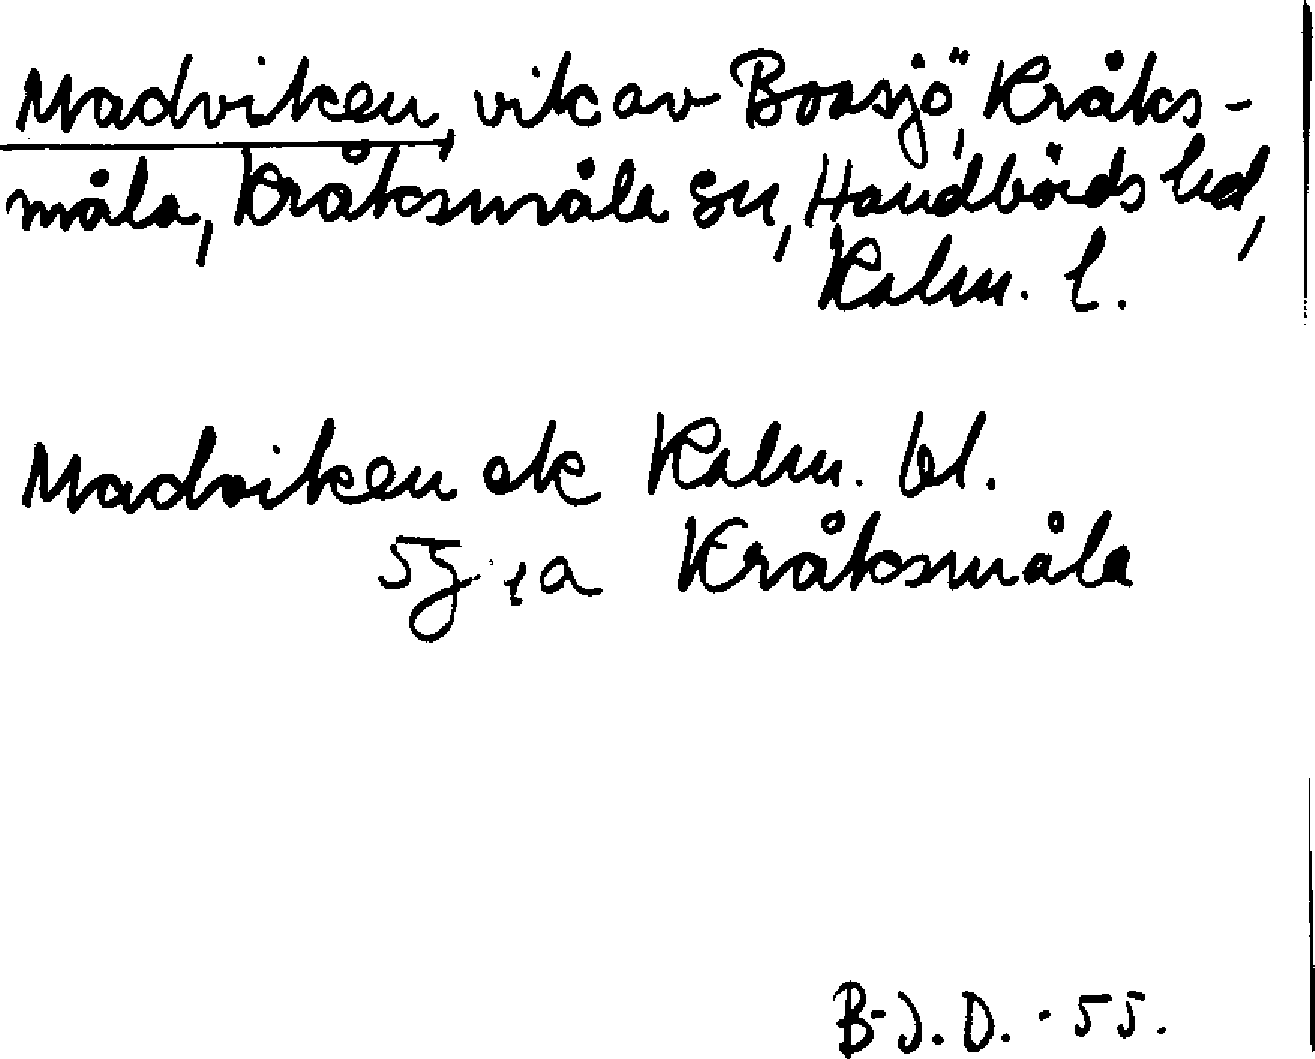 Madviken, vik av Boasjö, Kråks-
måla, Kråksmåla sn, Handbörds hd,
Kalm. l.
Madviken ek Kalm. bl.
5g ɩa Kråksmåla
B-J.D. -55.